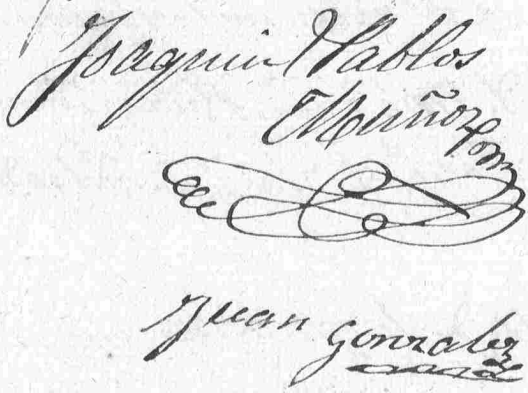 Joaquin Pablos
Muñoz
Juan Gonzalez